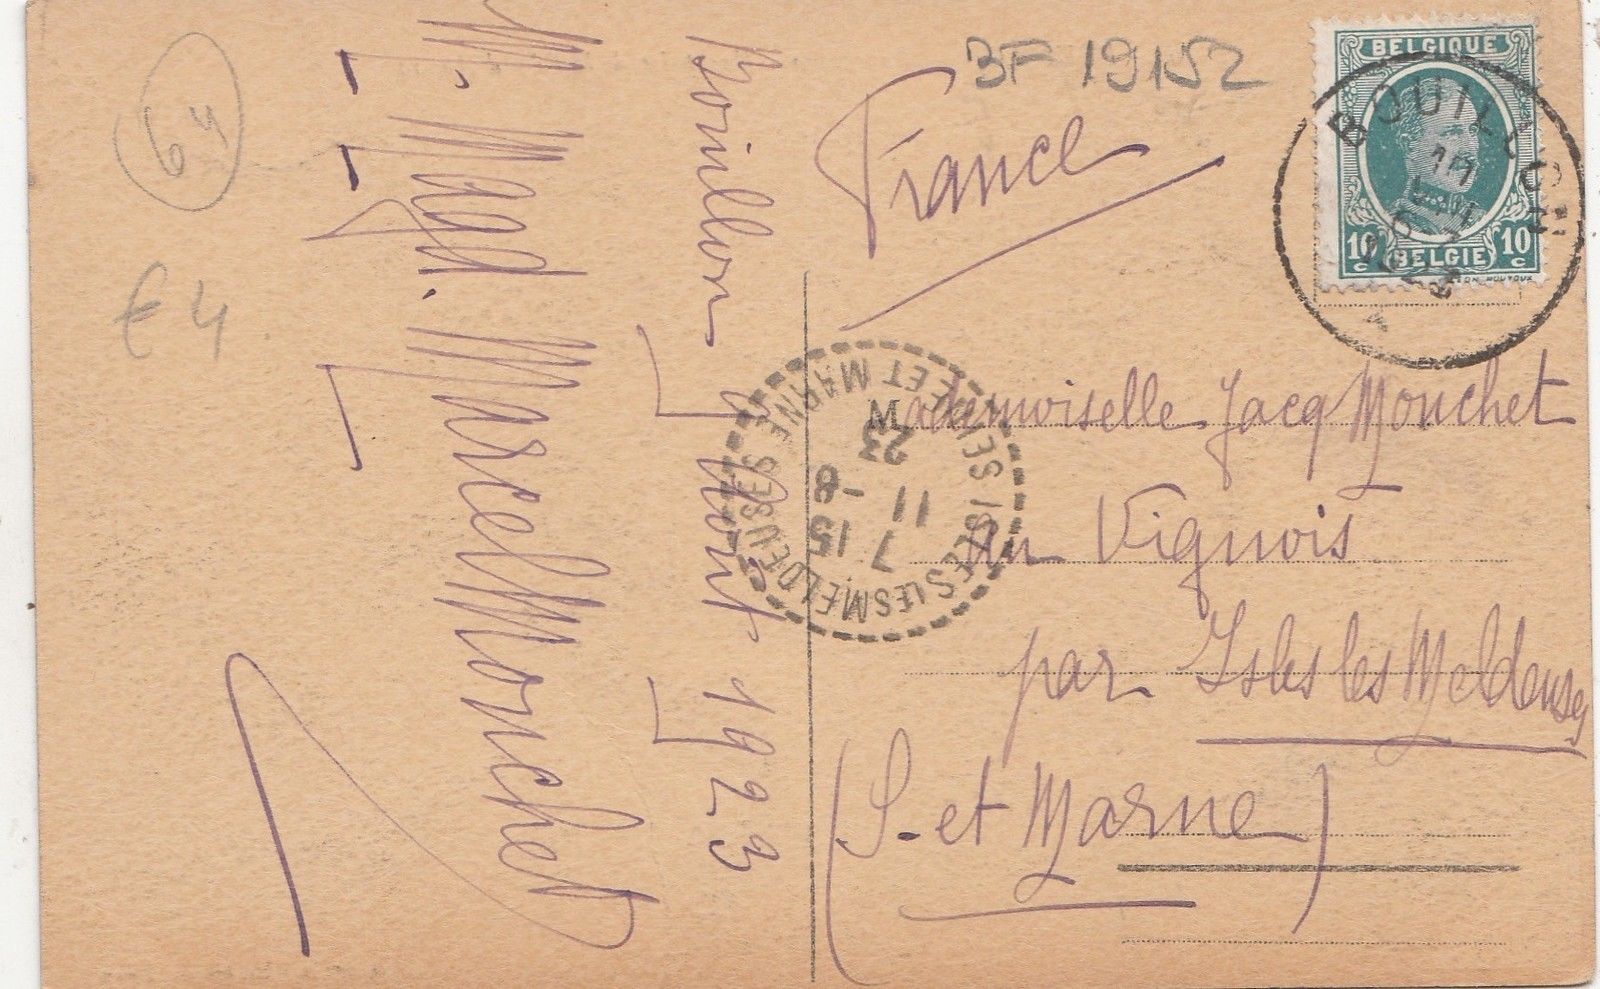 64
€ 4
3F 19152
France
BELGIQUE
10c 10c
BELGIE
BOUILLON
Mademoiselle Jacq Mouchet
au Vignois
par Isles les Meldeuses
(S. et Marne)
ISLES LES MELDEUSES
SEINE ET MARNE
7 15
11 -8
23
Bouillon 9 Août 1923
M. Magd. Marcel Mouchet